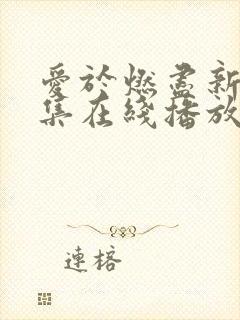 愛於燃盡新
集在綫播放
連榕